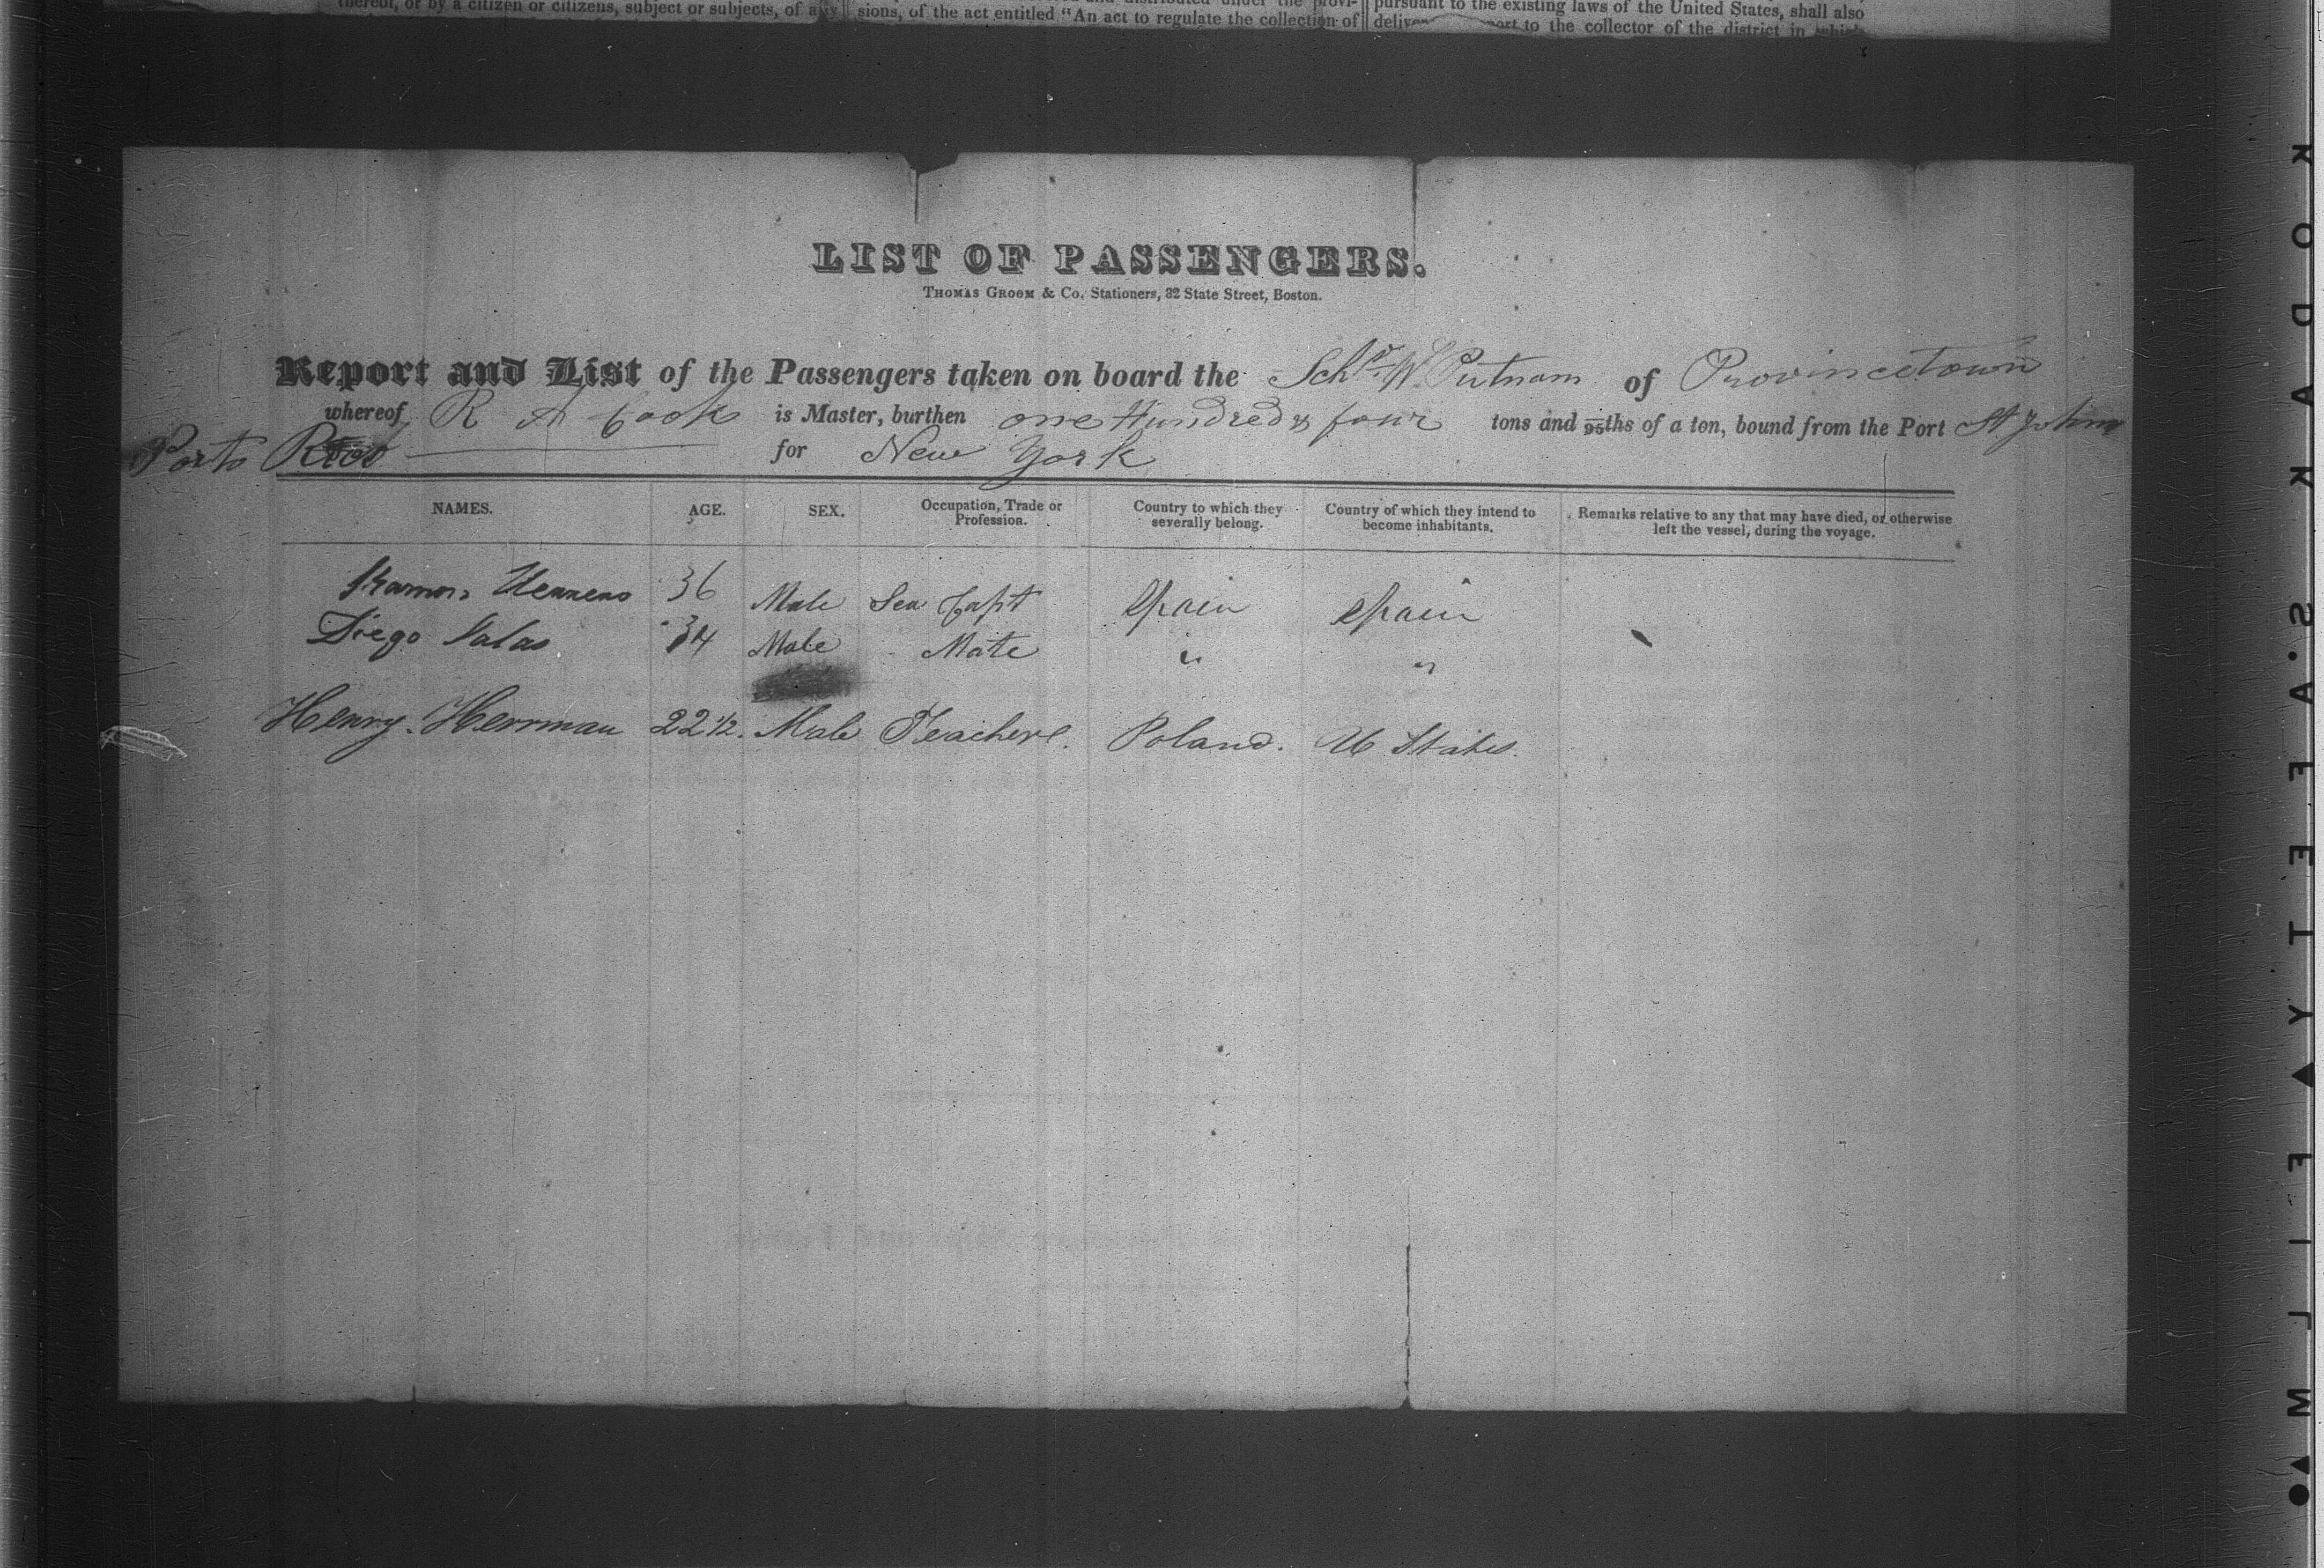 thereof, or by a citizen or citizens, subject or subjects, of any
sions, of the act entitled "An act to regulate the collection of
pursuant to the existing laws of the United States, shall also
to the collector of the district in which
LIST OF PASSENGERS.
THOMAS GROOM & CO. Stationers, 82 State Street, Boston.
Report and List of the Passengers taken on board the Schr W. Putnam of Provincetown
whereof R A Cook is Master, burthen one Hundred & four tons and 95ths of a ton, bound from the Port St Johns
Porto Rico for New York
NAMES. AGE. SEX. Occupation, Trade or Profession. Country to which they severally belong. Country of which they intend to become inhabitants. Remarks relative to any that may have died, or otherwise left the vessel, during the voyage.
Ramon 36 Male Sea Capt Spain Spain
Diego Salas 34 Male Mate " "
Henry Herrman 22 1/2. Male Teacher. Poland. U States.
SAFETY KODAK